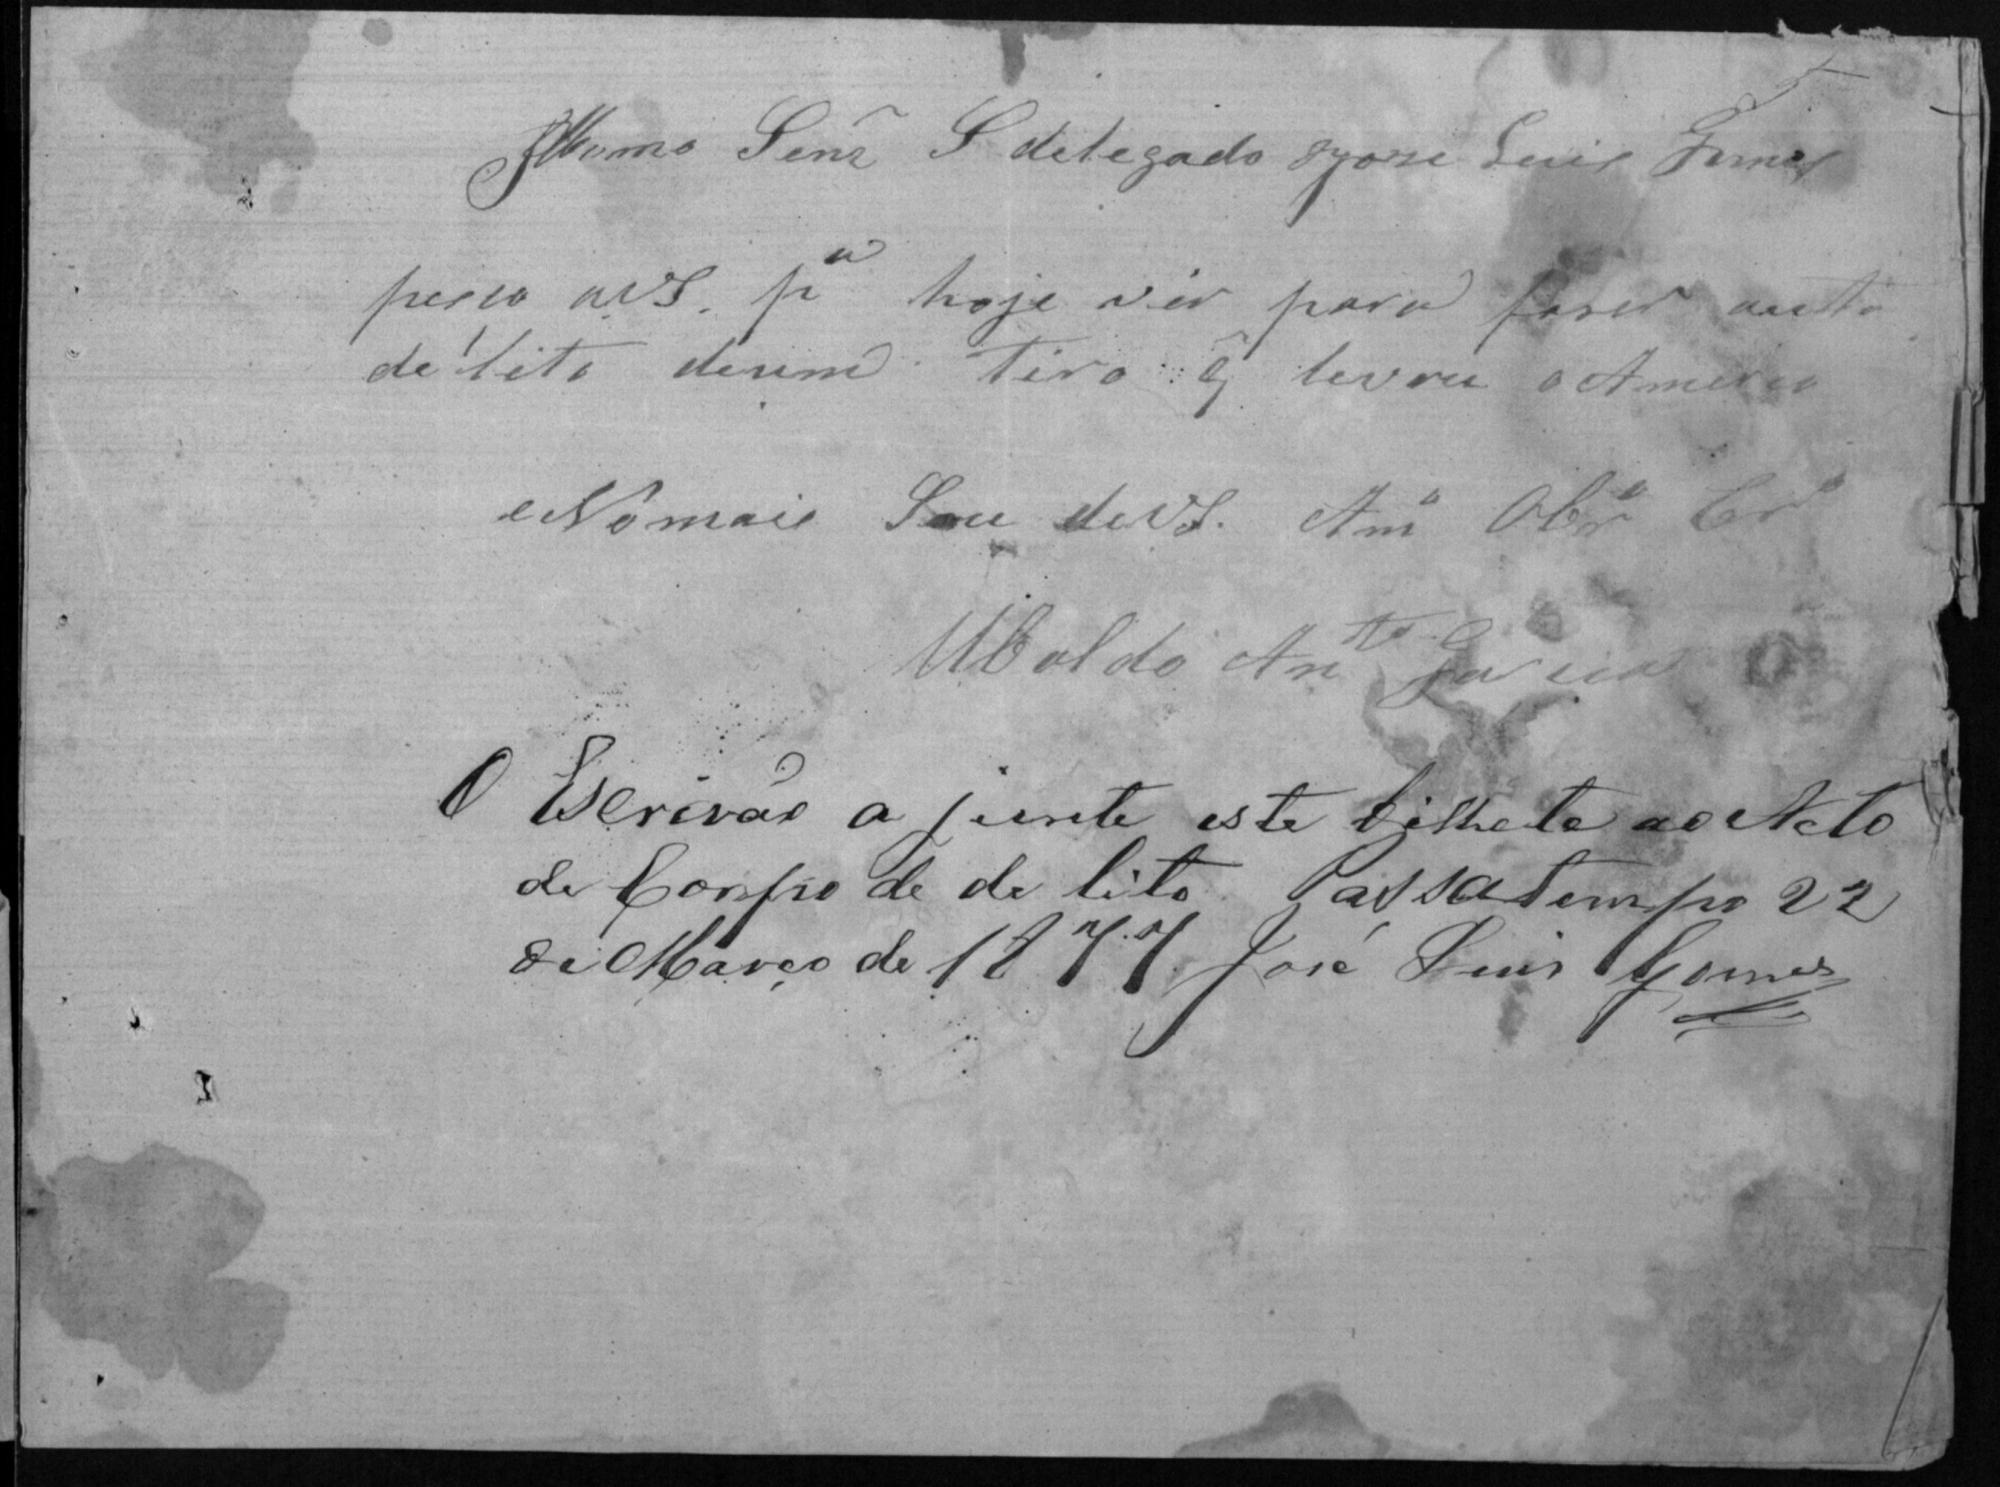 Illmo Senr Sdelegado Jose Luis Gomes
peço aVS. pa hoje vir para faser auto
de lito deum tiro q̃ levou o Americo
e No mais Sou deVS. Amo Obro Cro
Ubaldo Anto Garcia
O Escrivão a junte este bilhete ao Acto
de Corpo de de lito Passatempo 22
de Março de 1877 José Luis Gomes